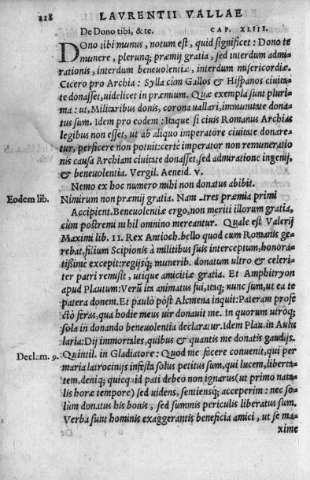 228 LAVRENTII VALLAE
De Dono tibi, & te. CAP. XLIII.
Dono tibi munus, notum est, quid significet: Dono te
munere, plerunq; præmij gratia, sed interdum admi-
rationis, interdum beneuolentiæ, interdum misericordiæ.
Cicero pro Archia: Sylla cùm Gallos & Hispanos ciuita-
te donasset, uidelicet in præmium. Quæ exempla sunt pluri-
ma: ut, Militaribus donis, corona uallari, immunitate dona-
tus sum. Idem pro eodem: Itaq; si ciuis Romanus Archias
legibus non esset, ut ab aliquo imperatore ciuitate donare-
tur, perficere non potuit: certè imperator non remuneratio
nis causa Archiam ciuitate donasset, sed admiratione ingenij,
& beneuolentia. Vergil. Aeneid. v.
Nemo ex hoc numero mihi non donatus abibit.
Eodem lib. Nimirum non præmij gratia. Nam tres præmia primi
Accipient. Beneuolentiæ ergo, non meriti illorum gratia,
cùm postremi nihil omnino mereantur. Quale est Valerij
Maximi lib. 11. Rex Antioch. bello quod cum Romanis ge-
rebat, filium Scipionis à militibus suis interceptum, honora-
tissimè excepit: regijsq; munerib. donatum ultro & celeri-
ter patri remisit, utique amicitiæ gratia. Et Amphitryon
apud Plautum: Verùm tu animatus sui, itaq; nunc sum, ut ea te
patera donem. Et paulò pòst Alcmena inquit: Pateram profe
ctò feras, qua hodie meus uir donauit me. In quorum utroq;
sola in donando beneuolentia declaratur. Idem Plau. in Aulu
laria: Dij immortales, quibus & quantis me donatis gaudijs.
Decl. m. 9. Quintil. in Gladiatore: Quod me fecere conuenit, qui per
maria latrocinijs infesta solus petitus sum, qui lucem, liberta-
tem, deniq; quicquid pati debeo non ignarus (ut primo nata-
lis horæ tempore) sed uidens, sentiensq; acceperim: nec so-
lùm donatus his bonis, sed summis periculis liberatus sum.
Verba sunt hominis exaggerantis beneficia amici, ut se ma-
xime